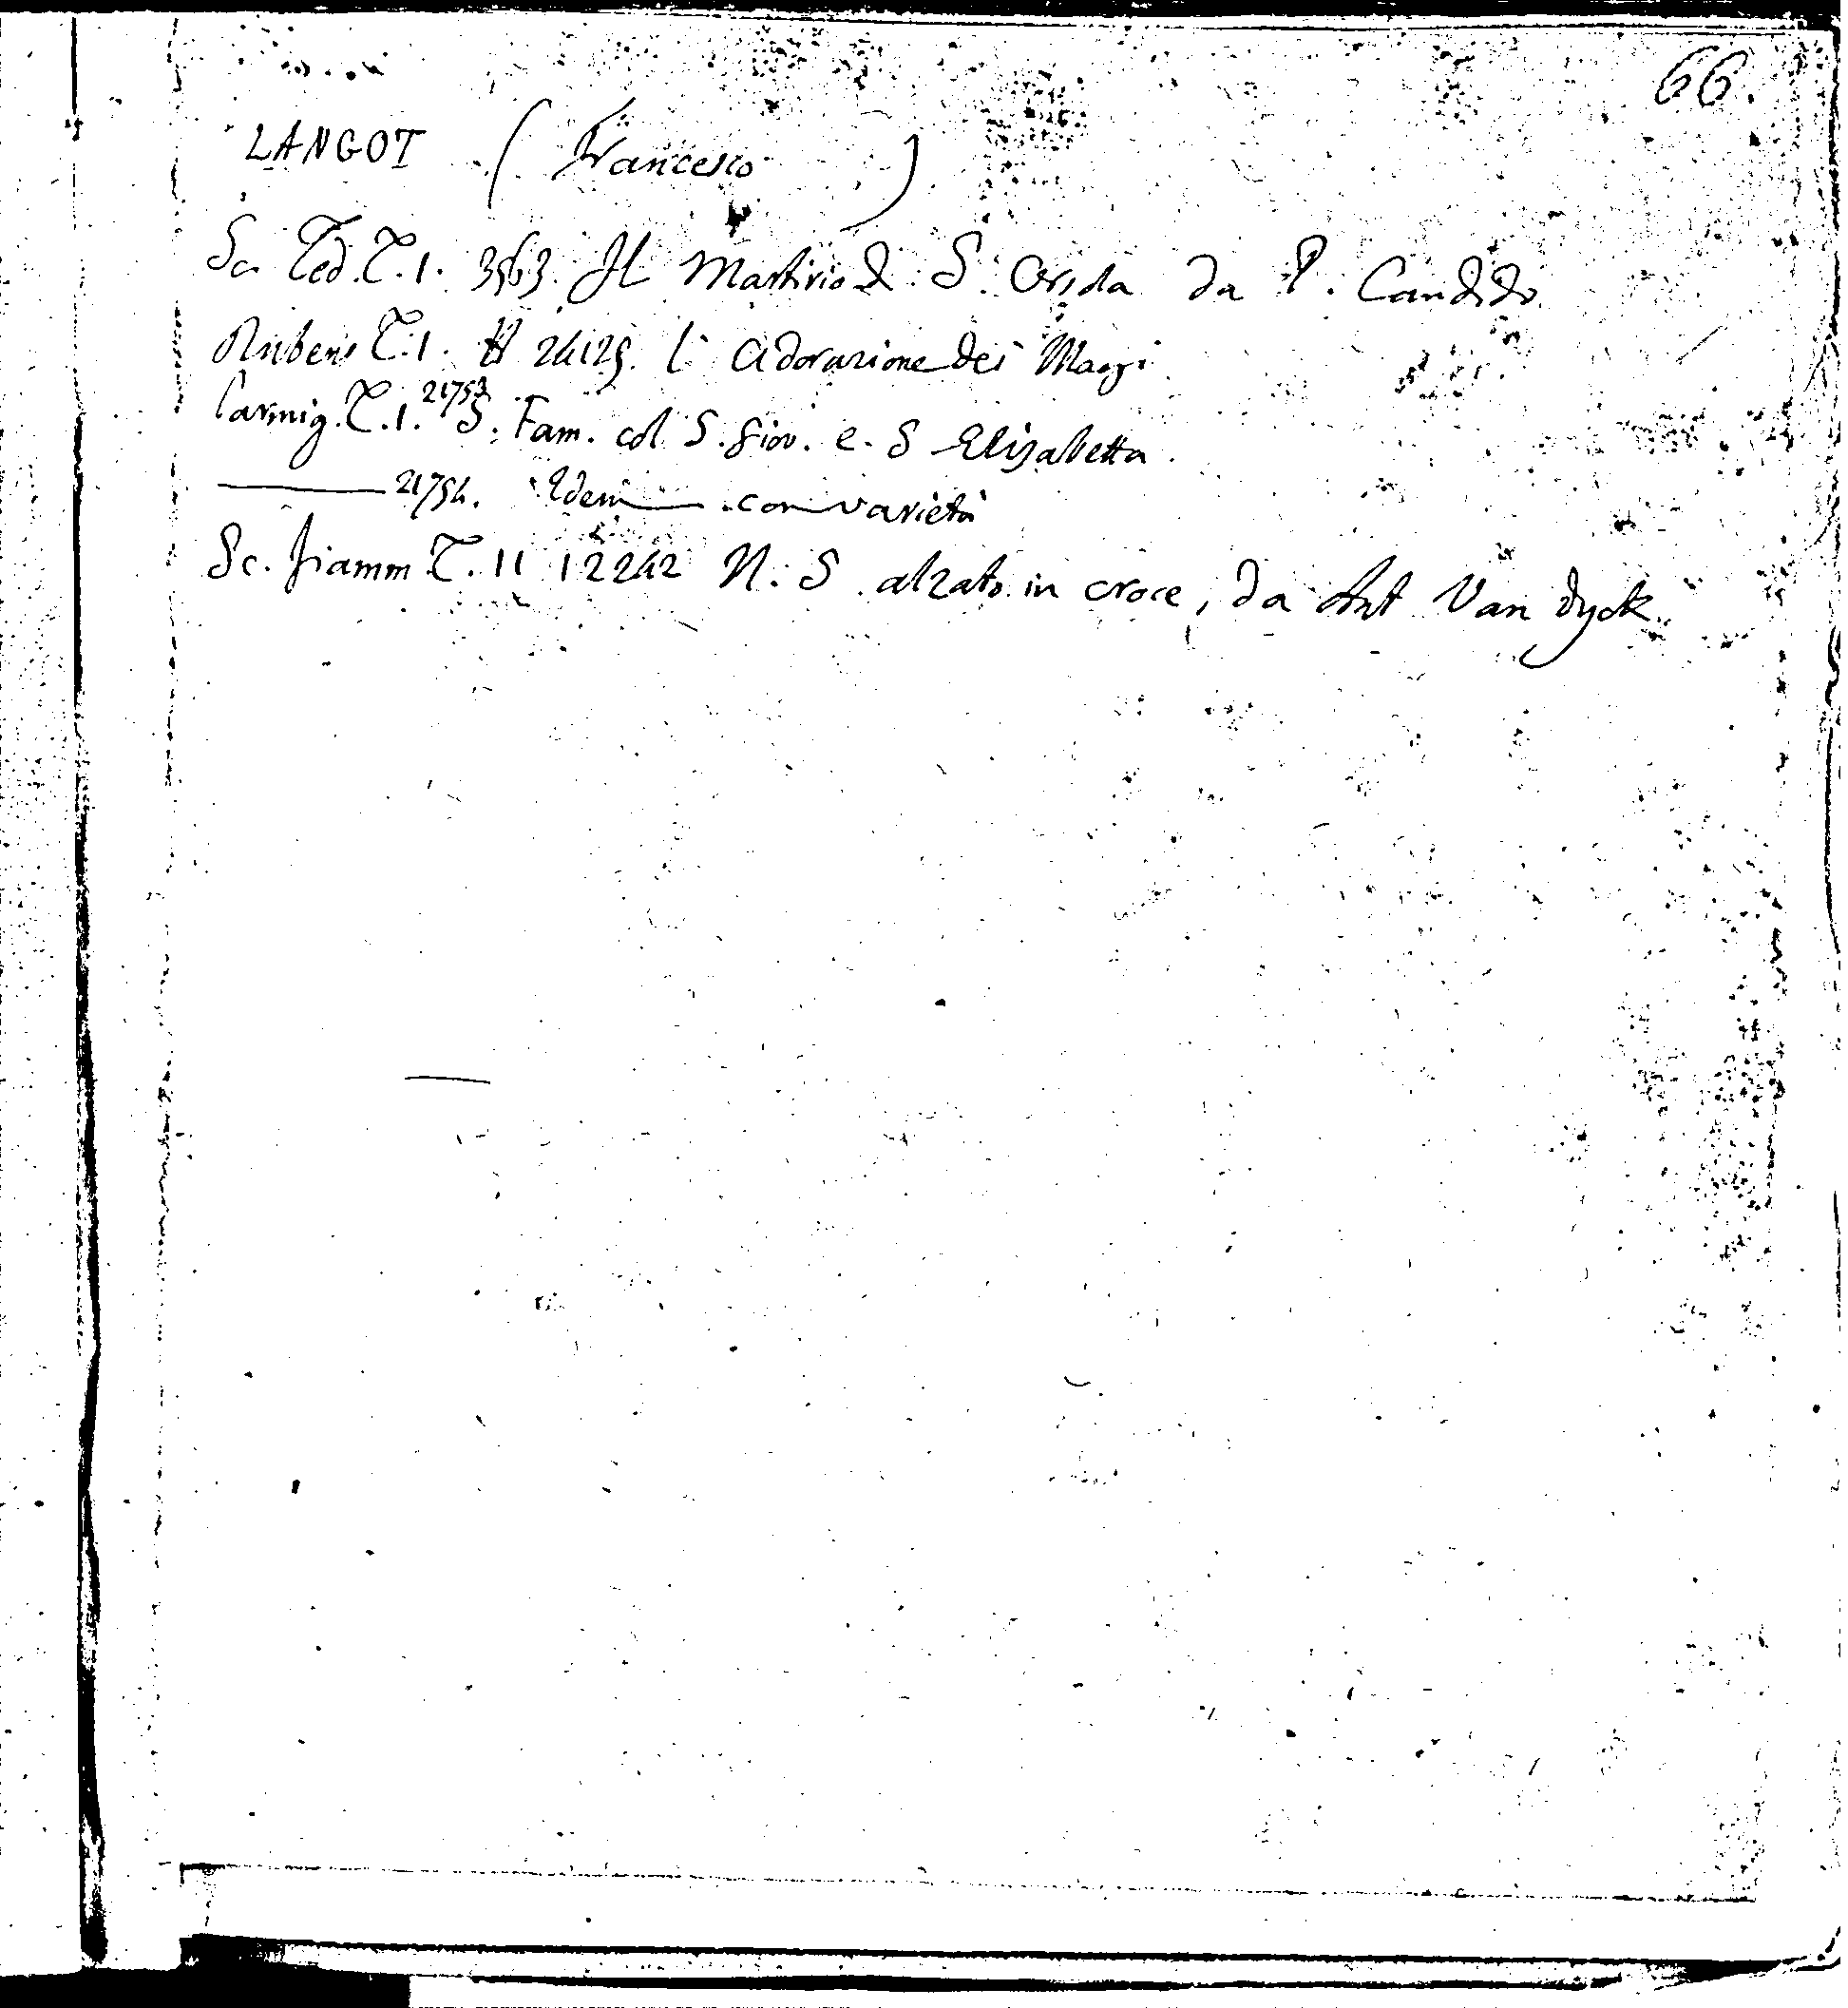 66.
LANGOT (Francesco)
Sc. Ted. T. 1. 3563. Il Martirio di S. Orsola da P. Candido
Rubens T. 1. 24125. l'Adorazione dei Magi
Parmig. T. 1. 21753 S. Fam. col S. Giov. e S Elisabetta.
——— 21754. Idem con varietà
Sc. fiamm T. 11 12242 N. S. alzato in croce, da Ant Van Dyck